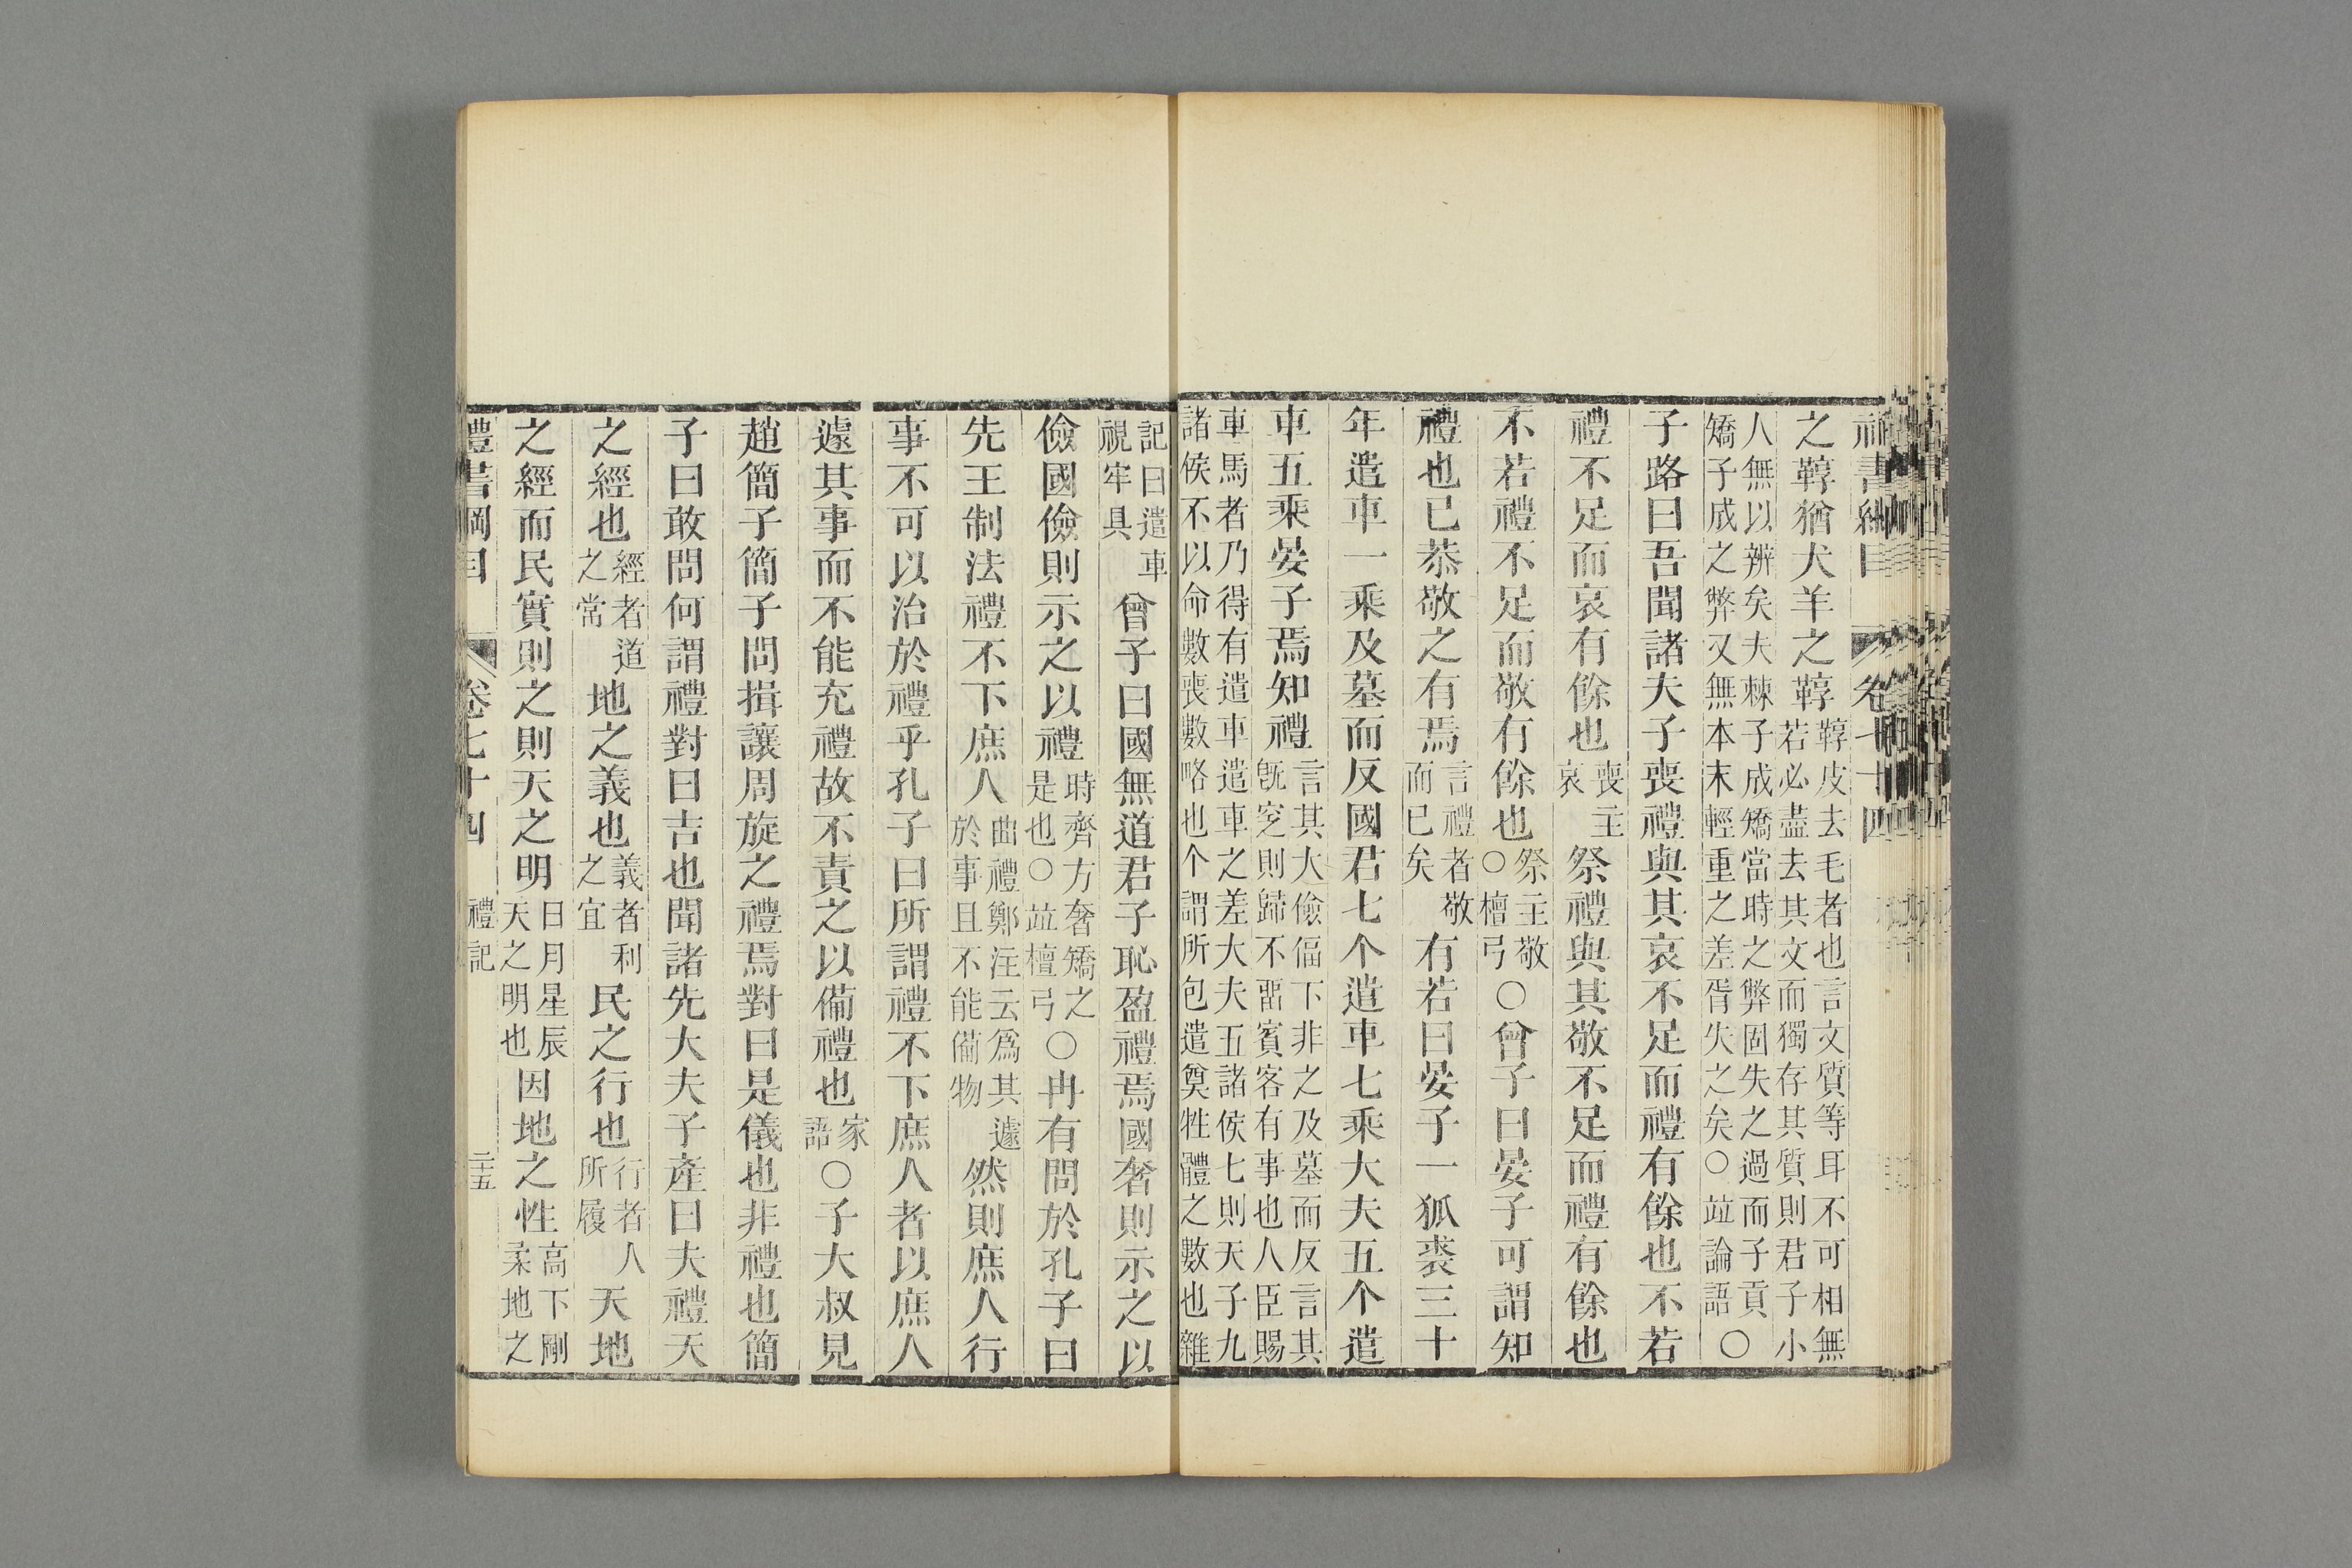 之鞟猶犬羊之鞟鞟皮去毛者也言文質等耳不可相無若必盡去其文而獨存其質則君子小
人無以辨矣夫棘子成矯當時之弊固失之過而子貢矯子成之弊又無本末輕重之差胥失之矣○竝論語○
子路曰吾聞諸夫子喪禮與其哀不足而禮有餘也不若
禮不足而哀有餘也喪主哀祭禮與其敬不足而禮有餘也
不若禮不足而敬有餘也祭主敬○檀弓○曾子曰晏子可謂知
禮也已恭敬之有焉言禮者敬而已矣有若曰晏子一狐裘三十
年遣車一乘及墓而反國君七个遣車七乘大夫五个遣
車五乘晏子焉知禮言其大儉偪下非之及墓而反言其旣窆則歸不畱賓客有事也人臣賜
車馬者乃得有遣車遣車之差大夫五諸侯七則天子九諸侯不以命數喪數略也个謂所包遣奠牲體之數也雜
記曰遣車視牢具曾子曰國無道君子恥盈禮焉國奢則示之以
儉國儉則示之以禮時齊方奢矯之是也○竝檀弓○冉有問於孔子曰
先王制法禮不下庶人曲禮鄭注云爲其遽於事且不能備物然則庶人行
事不可以治於禮乎孔子曰所謂禮不下庶人者以庶人
遽其事而不能充禮故不責之以備禮也家語○子大叔見
趙簡子簡子問揖讓周旋之禮焉對曰是儀也非禮也簡
子曰敢問何謂禮對曰吉也聞諸先大夫子產曰夫禮天
之經也經者道之常地之義也義者利之宜民之行也行者人所履天地
之經而民實則之則天之明日月星辰天之明也因地之性高下剛柔地之
禮書綱目 卷七十四 禮記 二十五